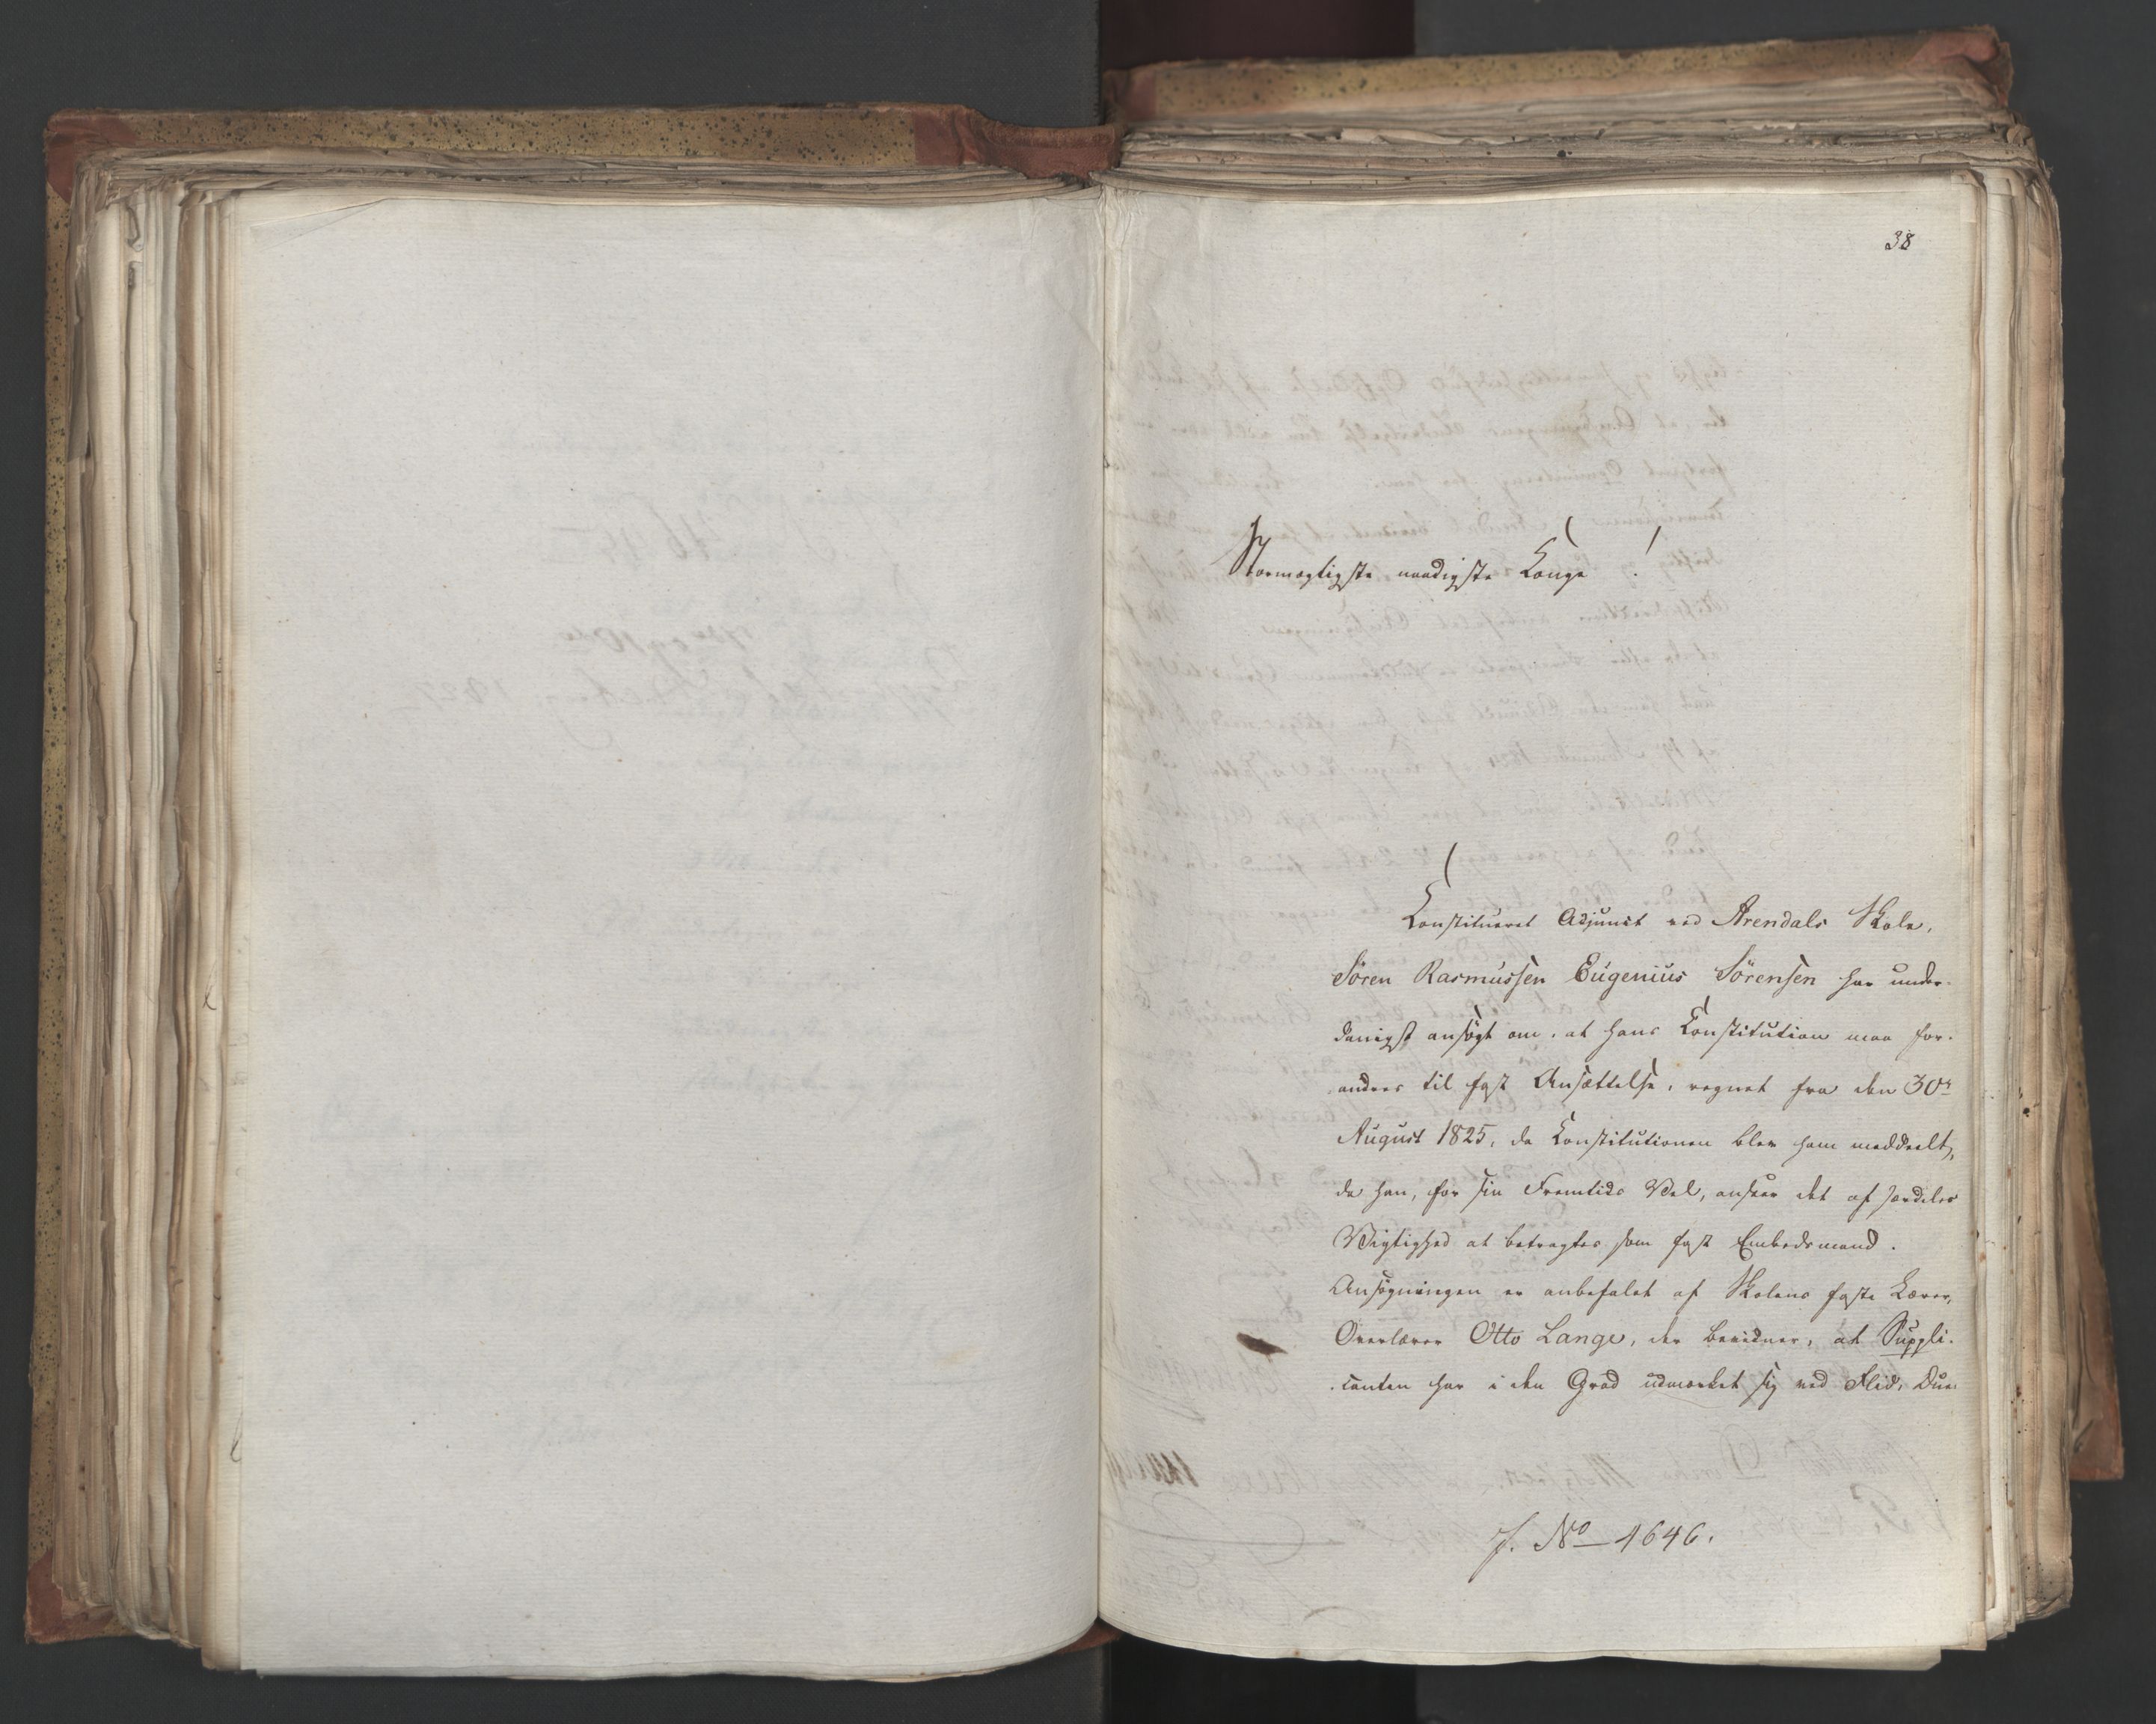 38
Stormægtigste naadigste Konge!
Konstitueret Adjunct ved Arendals Skole,
Sören Rasmüssen Eugenius Sörensen har under-
danigst ansøgt om, at hans Konstitution maa for-
andres til fast Ansættelse, regnet fra den 30te
August 1825, da Konstitutionen blev ham meddeelt,
da han, for sin Fremtids Vel, anseer det af særdeles
Vigtighed at betragtes som fast Embedsmand.
Ansøgningen er anbefalet af Skolens faste Lærer,
Overlærer Otto Lange, der bevidner, at Suppli-
-canten har i den Grad udmærket sig ved Flid, Due-
J. No 4646.